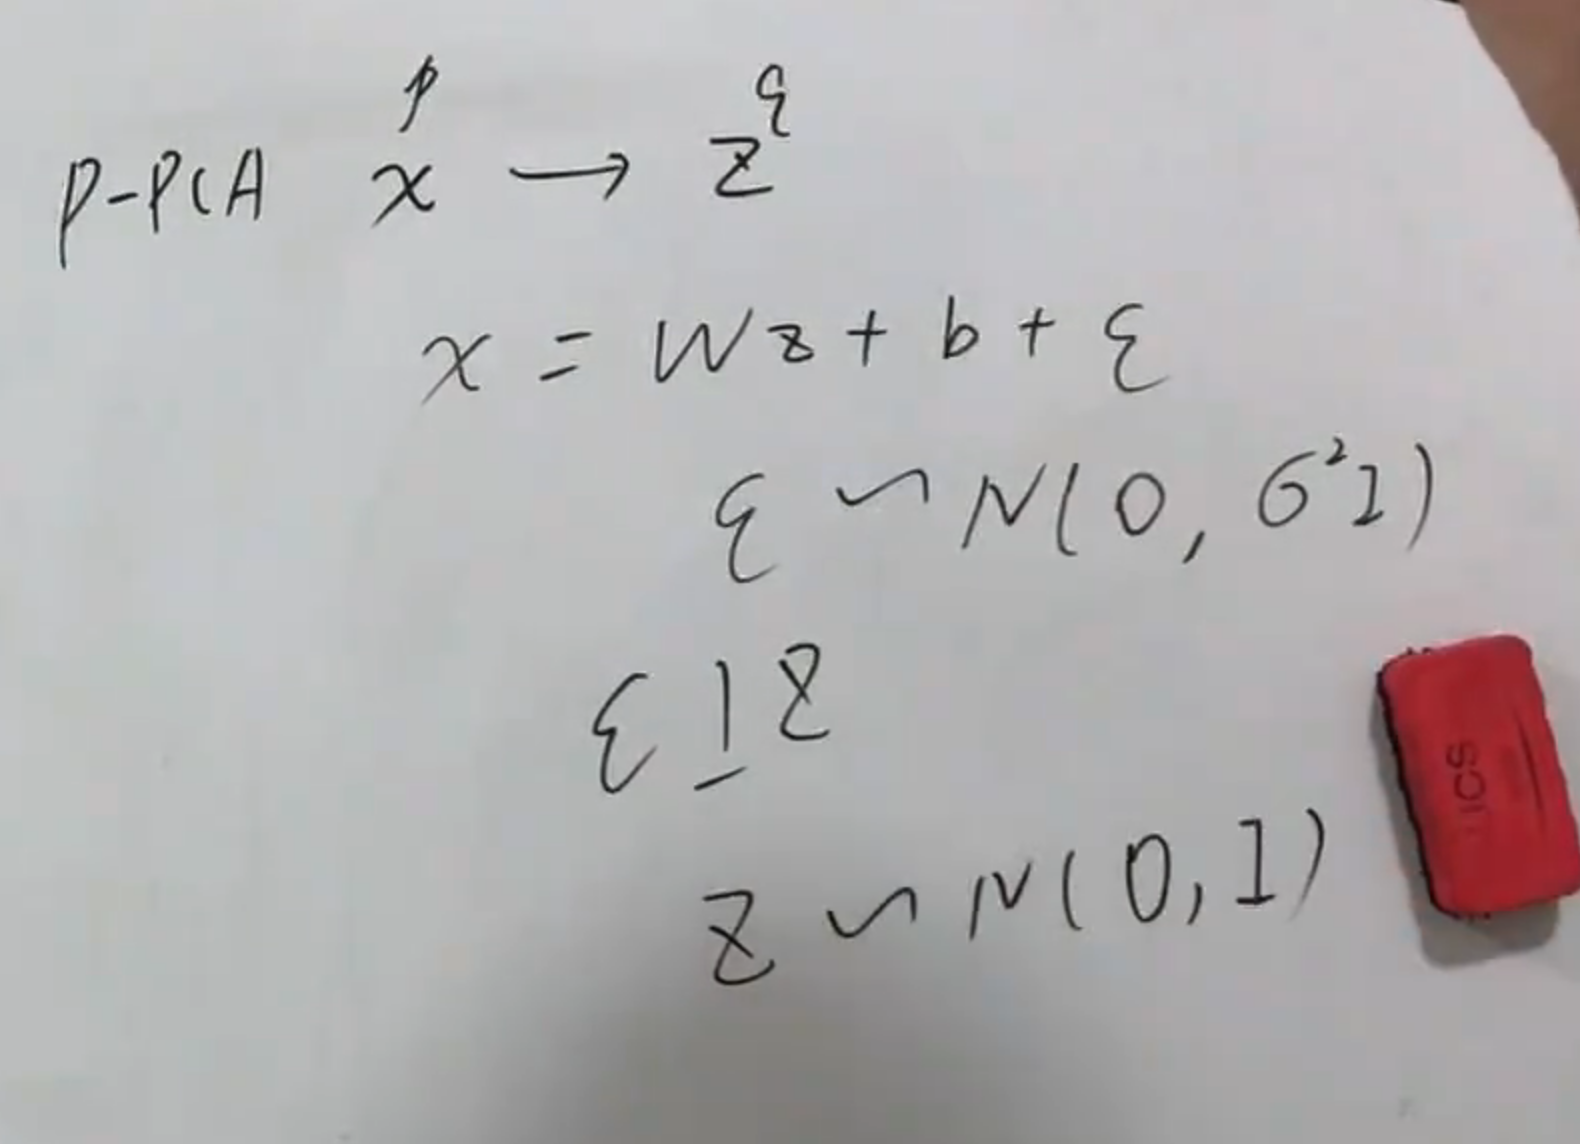 P-PCA x^p → z^q
x = Wz + b + ε
ε ~ N(0, σ²I)
ε ⊥ z
z ~ N(0, I)